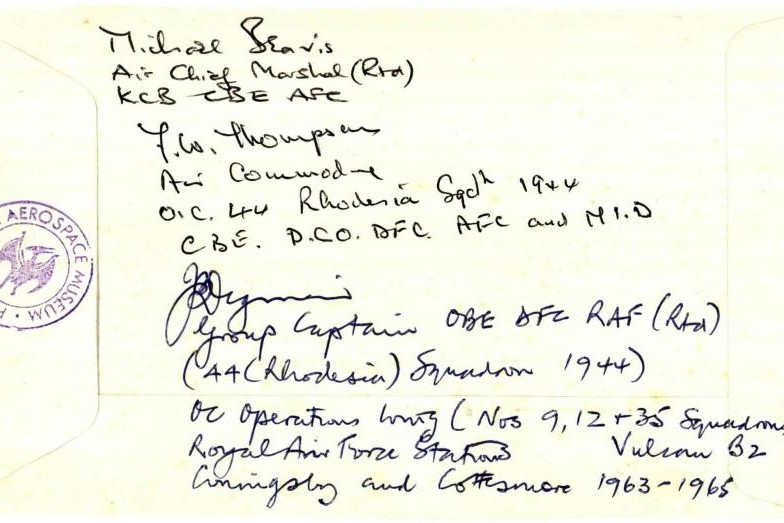 Michael Beavis
Air Chief Marshal (Rtd)
KCB CBE AFC
F.W. Thompson
Air Commodore
O.C. 44 Rhodesia Sqdn 1944
CBE. D.S.O. DFC. AFC and M.I.D
Group Captain OBE DFC RAF (Rtd)
(44 (Rhodesia) Squadron 1944)
OC Operations Wing (Nos 9, 12 + 35 Squadrons
Royal Air Force Stations Vulcan B2
Coningsby and Cottesmore 1963-1965
AEROSPACE MUSEUM